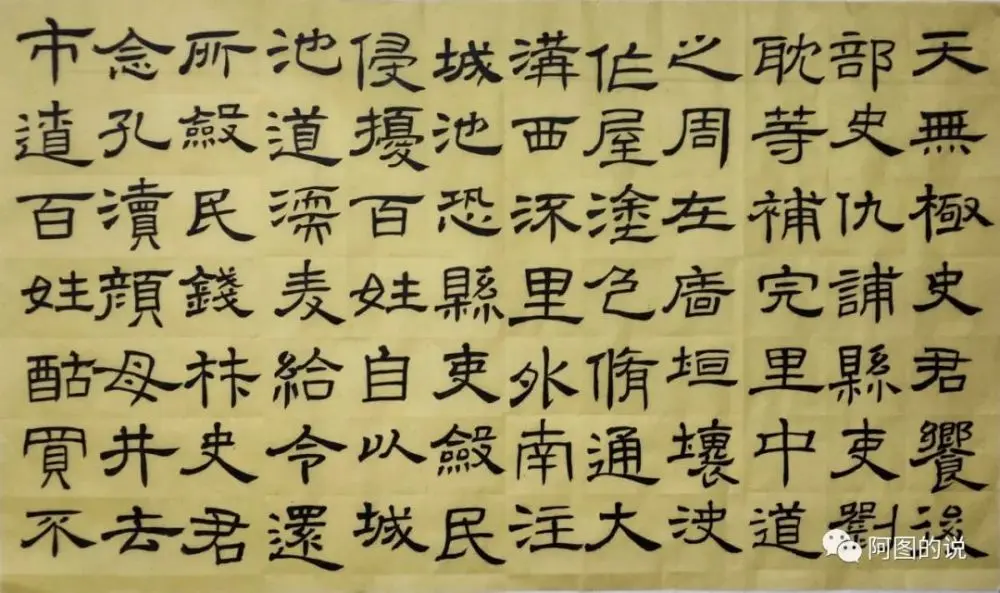 天無極史君饗後
部史仇誧縣吏劉
耽等補完里中道
之周左廧垣壞決
作屋塗色脩通大
溝西流里外南注
城池恐縣吏斂民
侵擾百姓自以城
池道濡麦給令還
所斂民錢材史君
念孔瀆顏母井去
市遼百姓酤買不
阿图的说